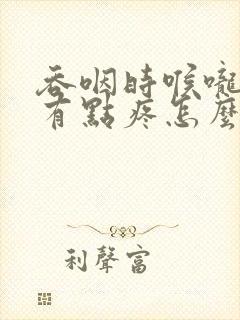 吞咽時喉嚨
有點疼怎麼
利聲富